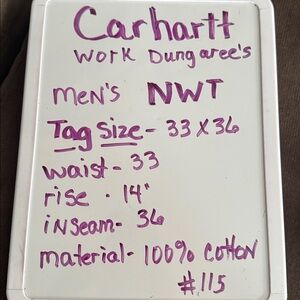 Carhartt
Work Dungaree's
Men's NWT
Tag Size - 33 x 36
waist - 33
rise - 14"
inseam - 36
material - 100% Cotton
#115